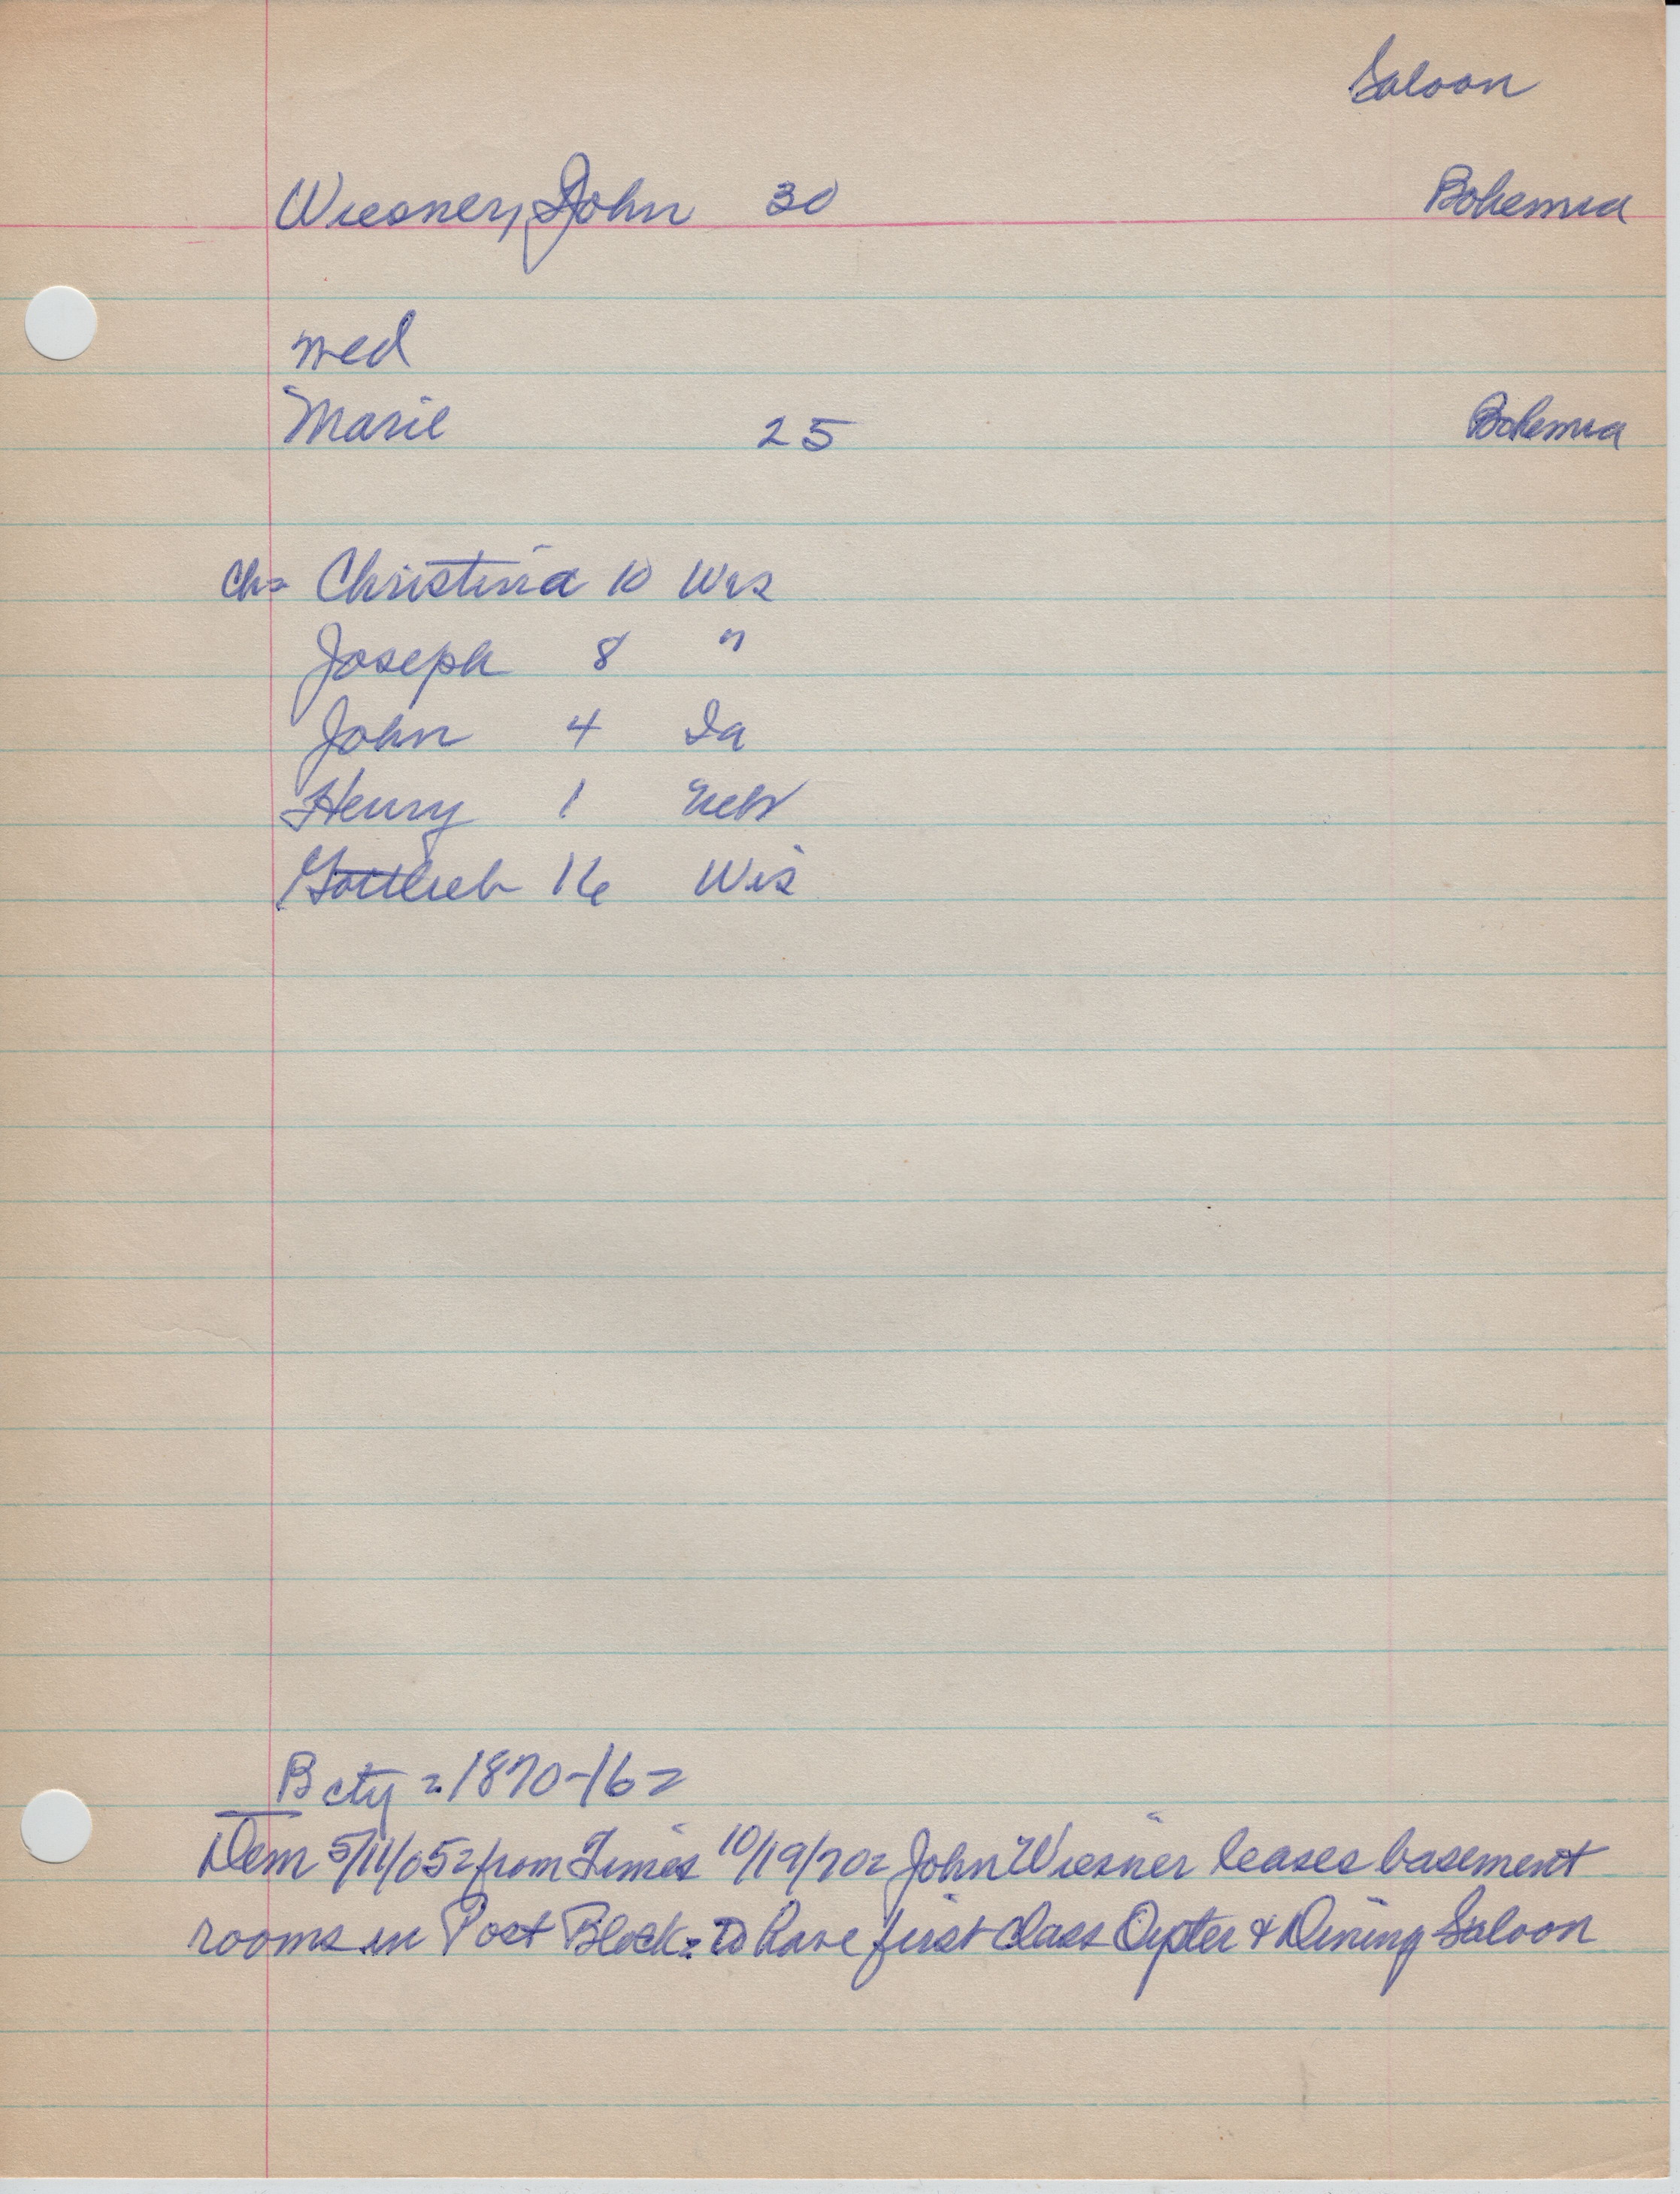 Saloon
Wiesner, John 30 Bohemia
med
Marie 25 Bohemia
Ch= Christina 10 Wis
Joseph 8 "
John 4 Ia
Henry 1 Nebr
Gottlieb 16 Wis
B cty = 1870-162
Dem 5/11/05= from Times 10/19/70= John Wiesner leases basement
rooms in Post Block= to have first class Oyster & Dining Saloon